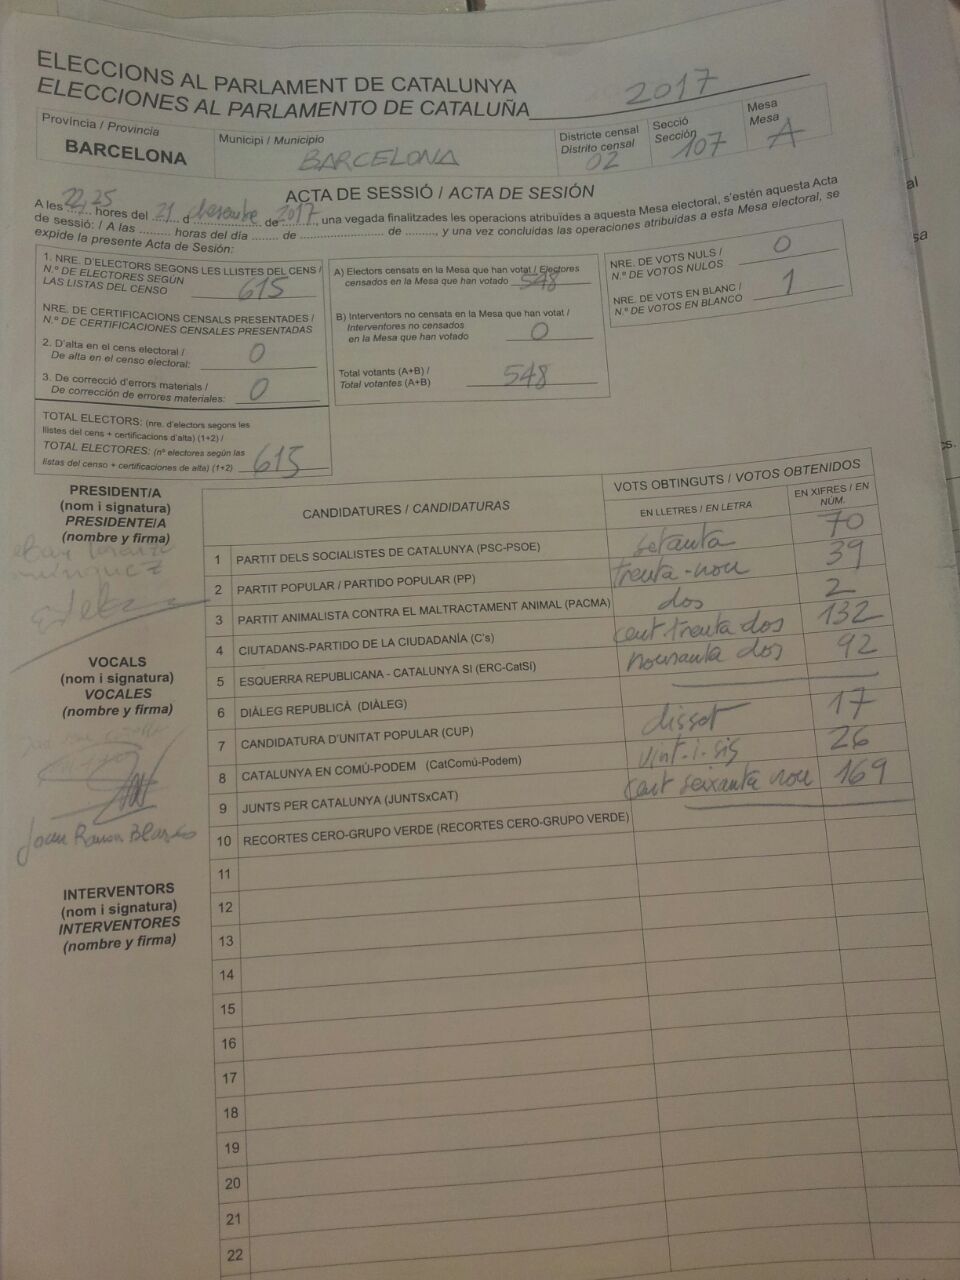 ELECCIONS AL PARLAMENT DE CATALUNYA
ELECCIONES AL PARLAMENTO DE CATALUÑA 2017
Província / Provincia
BARCELONA
Municipi / Municipio
BARCELONA
Districte censal
Distrito censal
02
Secció
Sección
107
Mesa
Mesa
A
ACTA DE SESSIÓ / ACTA DE SESIÓN
A les 22,25 hores del 21 d desembre de 2017, una vegada finalitzades les operacions atribuïdes a aquesta Mesa electoral, s'estén aquesta Acta
de sessió: / A las ......... horas del día ........ de ........................ de ........, y una vez concluidas las operaciones atribuidas a esta Mesa electoral, se
expide la presente Acta de Sesión:
1. NRE. D'ELECTORS SEGONS LES LLISTES DEL CENS /
N.º DE ELECTORES SEGÚN
LAS LISTAS DEL CENSO 615
NRE. DE CERTIFICACIONS CENSALS PRESENTADES /
N.º DE CERTIFICACIONES CENSALES PRESENTADAS
2. D'alta en el cens electoral /
De alta en el censo electoral: 0
3. De correcció d'errors materials /
De corrección de errores materiales: 0
TOTAL ELECTORS: (nre. d'electors segons les
llistes del cens + certificacions d'alta) (1+2) /
TOTAL ELECTORES: (nº electores según las
listas del censo + certificaciones de alta) (1+2) 615
A) Electors censats en la Mesa que han votat / Electores
censados en la Mesa que han votado 548
B) Interventors no censats en la Mesa que han votat /
Interventores no censados
en la Mesa que han votado 0
Total votants (A+B) /
Total votantes (A+B) 548
NRE. DE VOTS NULS /
N.º DE VOTOS NULOS 0
NRE. DE VOTS EN BLANC /
N.º DE VOTOS EN BLANCO 1
PRESIDENT/A
(nom i signatura)
PRESIDENTE/A
(nombre y firma)
VOCALS
(nom i signatura)
VOCALES
(nombre y firma)
Joan Ramon
INTERVENTORS
(nom i signatura)
INTERVENTORES
(nombre y firma)
CANDIDATURES / CANDIDATURAS
VOTS OBTINGUTS / VOTOS OBTENIDOS
EN LLETRES / EN LETRA
EN XIFRES / EN
NÚM.
1 PARTIT DELS SOCIALISTES DE CATALUNYA (PSC-PSOE) setanta 70
2 PARTIT POPULAR / PARTIDO POPULAR (PP) trenta-nou 39
3 PARTIT ANIMALISTA CONTRA EL MALTRACTAMENT ANIMAL (PACMA) dos 2
4 CIUTADANS-PARTIDO DE LA CIUDADANÍA (C's) cent trenta dos 132
5 ESQUERRA REPUBLICANA - CATALUNYA SI (ERC-CatSI) noranta dos 92
6 DIÀLEG REPUBLICÀ (DIÀLEG)
7 CANDIDATURA D'UNITAT POPULAR (CUP) disset 17
8 CATALUNYA EN COMÚ-PODEM (CatComú-Podem) vint-i-sis 26
9 JUNTS PER CATALUNYA (JUNTSxCAT) cent seixanta nou 169
10 RECORTES CERO-GRUPO VERDE (RECORTES CERO-GRUPO VERDE)
11
12
13
14
15
16
17
18
19
20
21
22